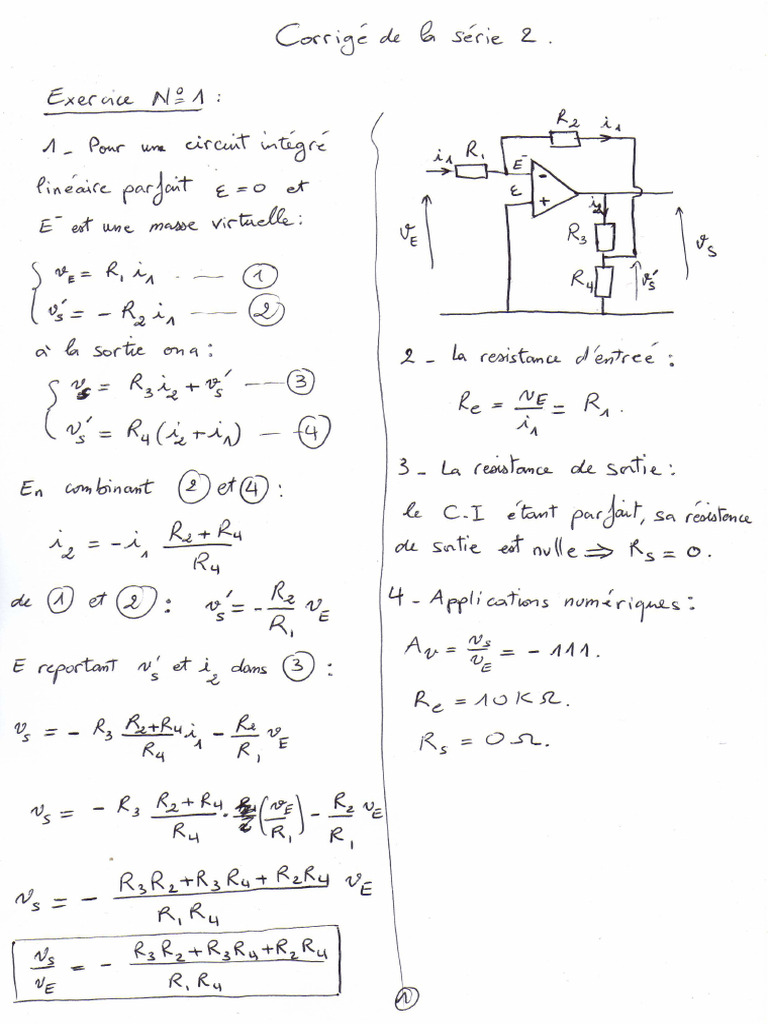 Corrigé de la série 2.
Exercice Nº1 :
1 - Pour une circuit intégré
linéaire parfait ε = 0 et
E⁻ est une masse virtuelle :
v_E = R₁ i₁ ---- ①
v_s' = - R₂ i₁ ---- ②
à la sortie on a :
v_s = R₃ i₂ + v_s' --- ③
v_s' = R₄ (i₂ + i₁) --- ④
En combinant ② et ④ :
i₂ = - i₁ (R₂ + R₄)/R₄
de ① et ② : v_s' = - R₂/R₁ v_E
E reportant v_s' et i₂ dans ③ :
v_s = - R₃ (R₂+R₄)/R₄ i₁ - R₂/R₁ v_E
v_s = - R₃ (R₂ + R₄)/R₄ · (v_E/R₁) - R₂/R₁ v_E
v_s = - (R₃R₂ + R₃R₄ + R₂R₄)/(R₁R₄) v_E
v_s/v_E = - (R₃R₂ + R₃R₄ + R₂R₄)/(R₁R₄)
R₂ i₁
i₁ R₁ E⁻ -
ε + i₂
v_E R₃ v_s
R₄ v_s'
2 - La resistance d'entreé :
Re = v_E/i₁ = R₁.
3 - La resistance de sortie :
le C.I étant parfait, sa résistance
de sortie est nulle ⇒ Rs = 0.
4 - Applications numériques :
Av = v_s/v_E = - 111.
Re = 10 KΩ.
Rs = 0 Ω.
①